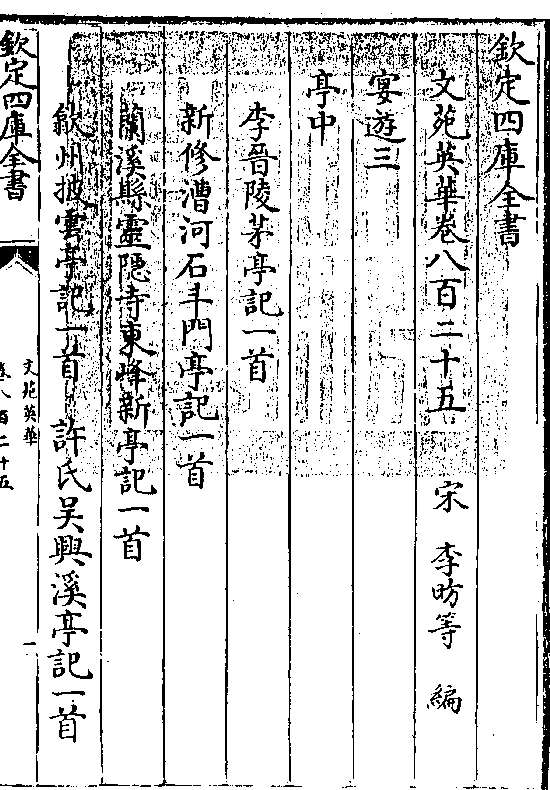 欽定四庫全書
文苑英華卷八百二十五　宋　李昉等　編
宴遊三
亭中
李晉陵茅亭記一首
新修漕河石斗門亭記一首
蘭溪縣靈隠寺東峰新亭記一首
歙州披雲亭記一首　許氏吴興溪亭記一首
欽定四庫全書
文苑英華
卷八百二十五
一